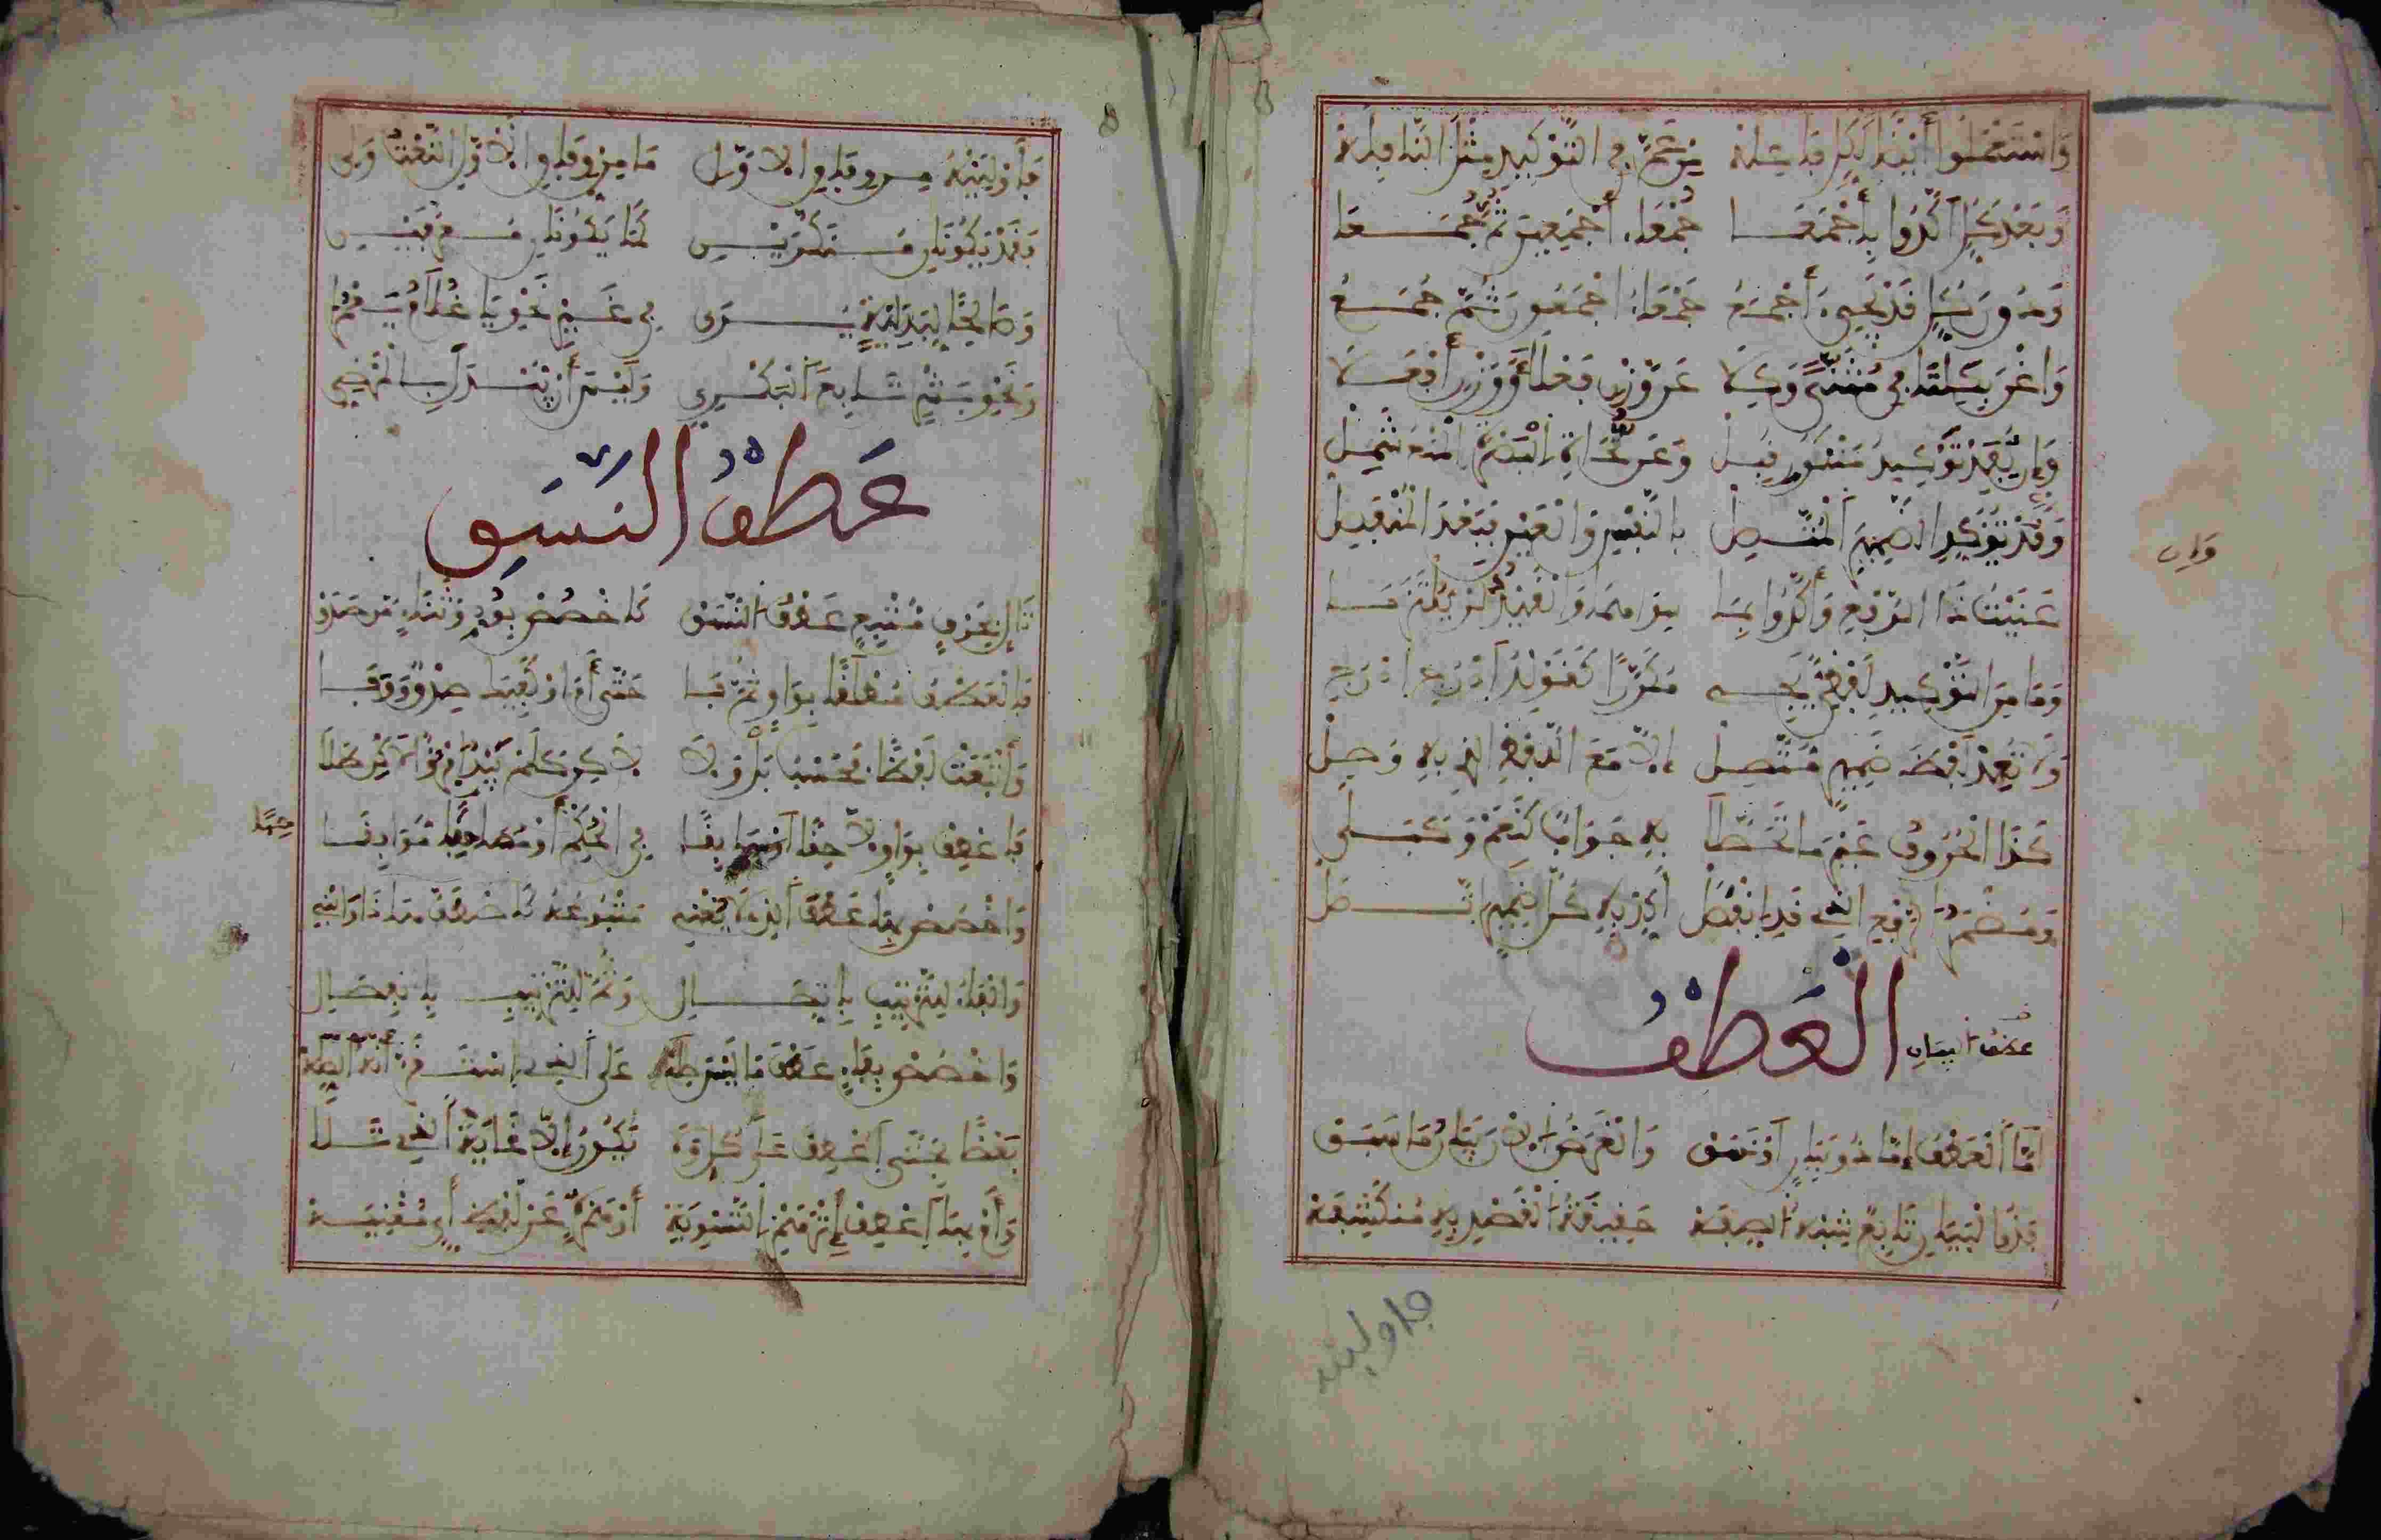 وَاسْتَعْمَلُوا أَيْضًا كَكُلٍّ فَاعِلَهْ مِنْ عَمَّ فِي التَّوْكِيدِ مِثْلَ النَّافِلَهْ
وَبَعْدَ كُلٍّ أَكَّدُوا بِأَجْمَعَا جَمْعَاءَ أَجْمَعِينَ ثُمَّ جُمَعَا
وَدُونَ كُلٍّ قَدْ يَجِيءُ أَجْمَعُ جَمْعَاءُ أَجْمَعُونَ ثُمَّ جُمَعُ
وَاغْنَ بِكِلْتَا فِي مُثَنًّى وَكِلَا عَنْ وَزْنِ فَعْلَاءَ وَوَزْنِ أَفْعَلَا
وَإِنْ يُفِدْ تَوْكِيدُ مَنْكُورٍ قُبِلْ وَعَنْ نُحَاةِ الْبَصْرَةِ الْمَنْعُ شَمِلْ
وَإِنْ تُؤَكِّدِ الضَّمِيرَ الْمُتَّصِلْ بِالنَّفْسِ وَالْعَيْنِ فَبَعْدَ الْمُنْفَصِلْ
وَإِن
عَنَيْتُ ذَا الرَّفْعِ وَأَكَّدُوا بِمَا سِوَاهُمَا وَالْقَيْدُ لَنْ يُلْتَزَمَا
وَمَا مِنَ التَّوْكِيدِ لَفْظِيٌّ يَجِي مُكَرَّرًا كَقَوْلِكَ ادْرُجِ ادْرُجِ
وَلَا تُعِدْ لَفْظَ ضَمِيرٍ مُتَّصِلْ إِلَّا مَعَ اللَّفْظِ الَّذِي بِهِ وُصِلْ
كَذَا الْحُرُوفُ غَيْرَ مَا تَحَصَّلَا بِهِ جَوَابٌ كَنَعَمْ وَكَبَلَى
وَمُضْمَرُ الرَّفْعِ الَّذِي قَدِ انْفَصَلْ أَكِّدْ بِهِ كُلَّ ضَمِيرٍ اتَّصَلْ
الْعَطْفُ
عطف البيان
أَمَّا الْعَطْفُ إِمَّا ذُو بَيَانٍ أَوْ نَسَقْ وَالْغَرَضُ الْآنَ بَيَانُ مَا سَبَقْ
فَذُو الْبَيَانِ تَابِعٌ شِبْهُ الصِّفَهْ حَقِيقَةُ الْقَصْدِ بِهِ مُنْكَشِفَهْ
فأولينه
فَأَوْلِيَنْهُ مِنْ وِفَاقِ الْأَوَّلِ مَا مِنْ وِفَاقِ الْأَوَّلِ النَّعْتُ وَلِي
فَقَدْ يَكُونَانِ مُنَكَّرَيْنِ كَمَا يَكُونَانِ مُعَرَّفَيْنِ
وَصَالِحًا لِبَدَلِيَّةٍ يُرَى فِي غَيْرِ نَحْوِ يَا غُلَامُ يَعْمُرَا
وَنَحْوِ بِشْرٍ تَابِعِ الْبَكْرِيِّ وَلَيْسَ أَنْ يُبْدَلَ بِالْمَرْضِيِّ
عَطْفُ النَّسَقِ
تَالٍ بِحَرْفٍ مُتْبِعٍ عَطْفُ النَّسَقْ كَاخْصُصْ بِوُدٍّ وَثَنَاءٍ مَنْ صَدَقْ
فَالْعَطْفُ مُطْلَقًا بِوَاوٍ ثُمَّ فَا حَتَّى أَمَ اوْ كَفِيكَ صِدْقٌ وَوَفَا
وَأَتْبَعَتْ لَفْظًا فَحَسْبُ بَلْ وَلَا لَاكِنْ كَلَمْ يَبْدُ امْرُؤٌ لَاكِنْ طَلَا
فَاعْطِفْ بِوَاوٍ لَاحِقًا أَوْ سَابِقَا فِي الْحُكْمِ أَوْ مُصَاحِبًا مُوَافِقَا
وَاخْصُصْ بِهَا عَطْفَ الَّذِي لَا يُغْنِي مَتْبُوعُهُ كَاصْطَفَّ هَذَا وَابْنِي
وَالْفَاءُ لِلتَّرْتِيبِ بِاتِّصَالِ وَثُمَّ لِلتَّرْتِيبِ بِانْفِصَالِ
وَاخْصُصْ بِفَاءٍ عَطْفَ مَا لَيْسَ صِلَهْ عَلَى الَّذِي اسْتَقَرَّ أَنَّهُ الصِّلَهْ
بَعْضًا بِحَتَّى اعْطِفْ عَلَى كُلٍّ وَلَا يَكُونُ إِلَّا غَايَةَ الَّذِي تَلَا
وَأَمْ بِهَا اعْطِفْ إِثْرَ هَمْزِ التَّسْوِيَهْ أَوْ هَمْزَةٍ عَنْ لَفْظِ أَيٍّ مُغْنِيَهْ